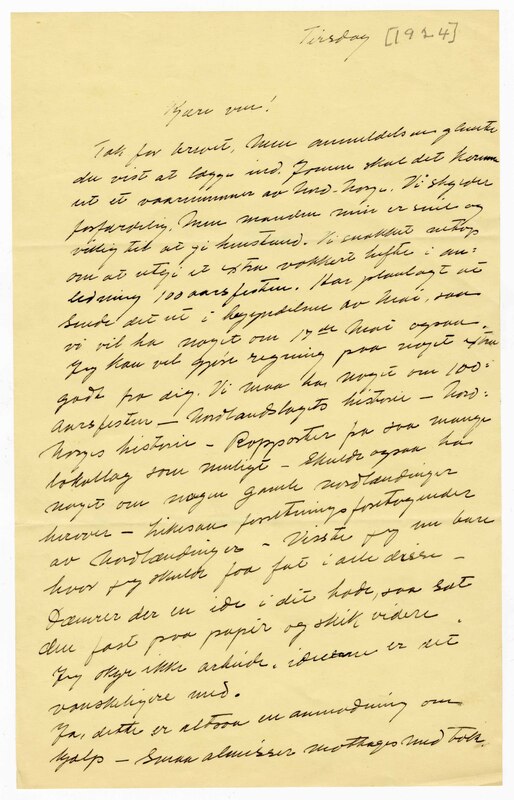 Tirsdag [1924]
Kjære ven!
Tak for brevet. Men anmeldelsen glemte
du vist at lægge ind. Jomen skal det komme
ut et vaarnummer av Nord-Norge. Vi skylder
forfærdelig. Men manden min er snil og
villig til at gi henstand. Vi snakket netop
om at utgi et extra vakkert hefte i an-
ledning 100 aarsfesten. Har planlagt at
sende det ut i begyndelsen av Mai, saa
vi vil ha noget om 17de Mai ogsaa.
Jeg kan vel gjøre regning paa noget extra
godt fra dig. Vi maa ha noget om 100-
aarsfesten — Nordlandslagets historie — Nord-
Norges historie — Rapporter fra saa mange
lokallag som muligt — Skulde ogsaa ha
noget om nogen gamle nordlændinger
herover — Likesaa forretningsforetagender
av Nordlændinger — Visste jeg nu bare
hvor jeg skulde faa fat i alle disse —
Dæmrer der en ide i dit hode, saa sæt
den fast paa papir og skik videre.
Jeg skyr ikke arbeide, ideerne er det
vanskeligere med.
Ja, dette er altsaa en anmodning om
hjælp — Smaa almisser mottages med tak.